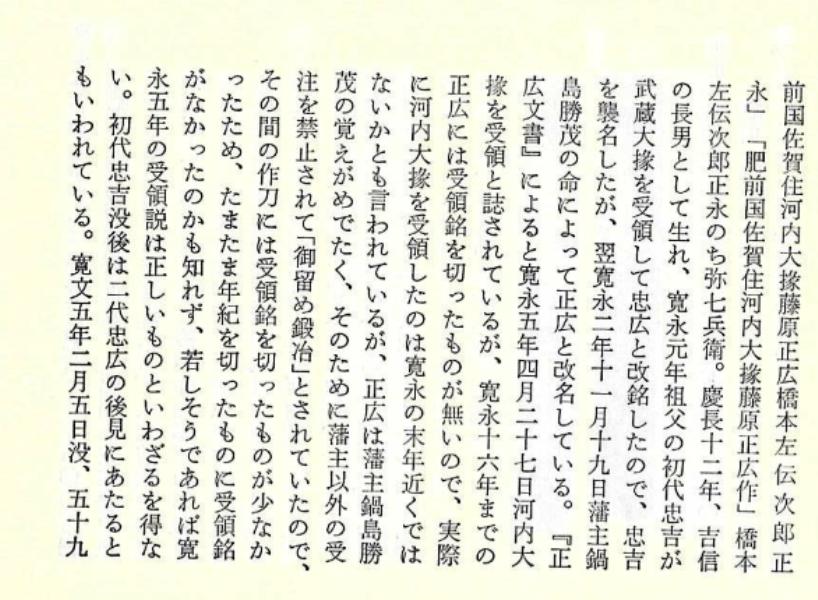 前国佐賀住河内大掾藤原正広橋本左伝次郎正
永」「肥前国佐賀住河内大掾藤原正広作」橋本
左伝次郎正永のち弥七兵衛。慶長十二年、吉信
の長男として生れ、寛永元年祖父の初代忠吉が
武蔵大掾を受領して忠広と改銘したので、忠吉
を襲名したが、翌寛永二年十一月十九日藩主鍋
島勝茂の命によって正広と改名している。『正
広文書』によると寛永五年四月二十七日河内大
掾を受領と誌されているが、寛永十六年までの
正広には受領銘を切ったものが無いので、実際
に河内大掾を受領したのは寛永の末年近くでは
ないかとも言われているが、正広は藩主鍋島勝
茂の覚えがめでたく、そのために藩主以外の受
注を禁止されて「御留め鍛冶」とされていたので、
その間の作刀には受領銘を切ったものが少なか
ったため、たまたま年紀を切ったものに受領銘
がなかったのかも知れず、若しそうであれば寛
永五年の受領説は正しいものといわざるを得な
い。初代忠吉没後は二代忠広の後見にあたると
もいわれている。寛文五年二月五日没、五十九